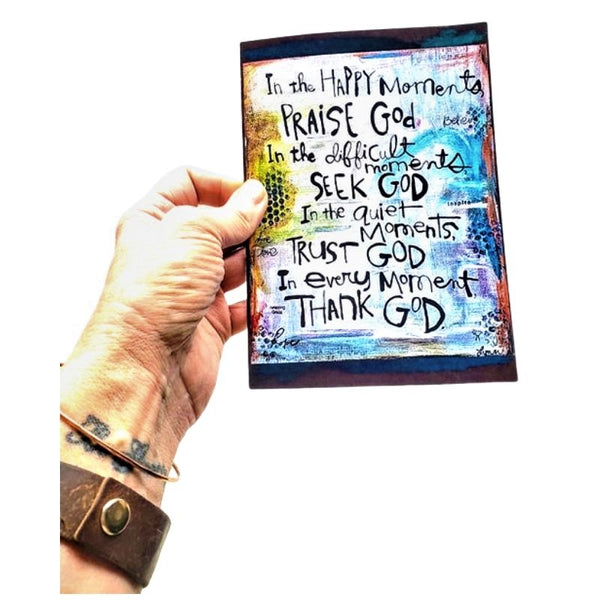 In the HAPPY Moments,
PRAISE God
In the difficult
moments,
SEEK GOD
inspire
In the quiet
Moments,
TRUST GOD
In every Moment,
THANK GOD.